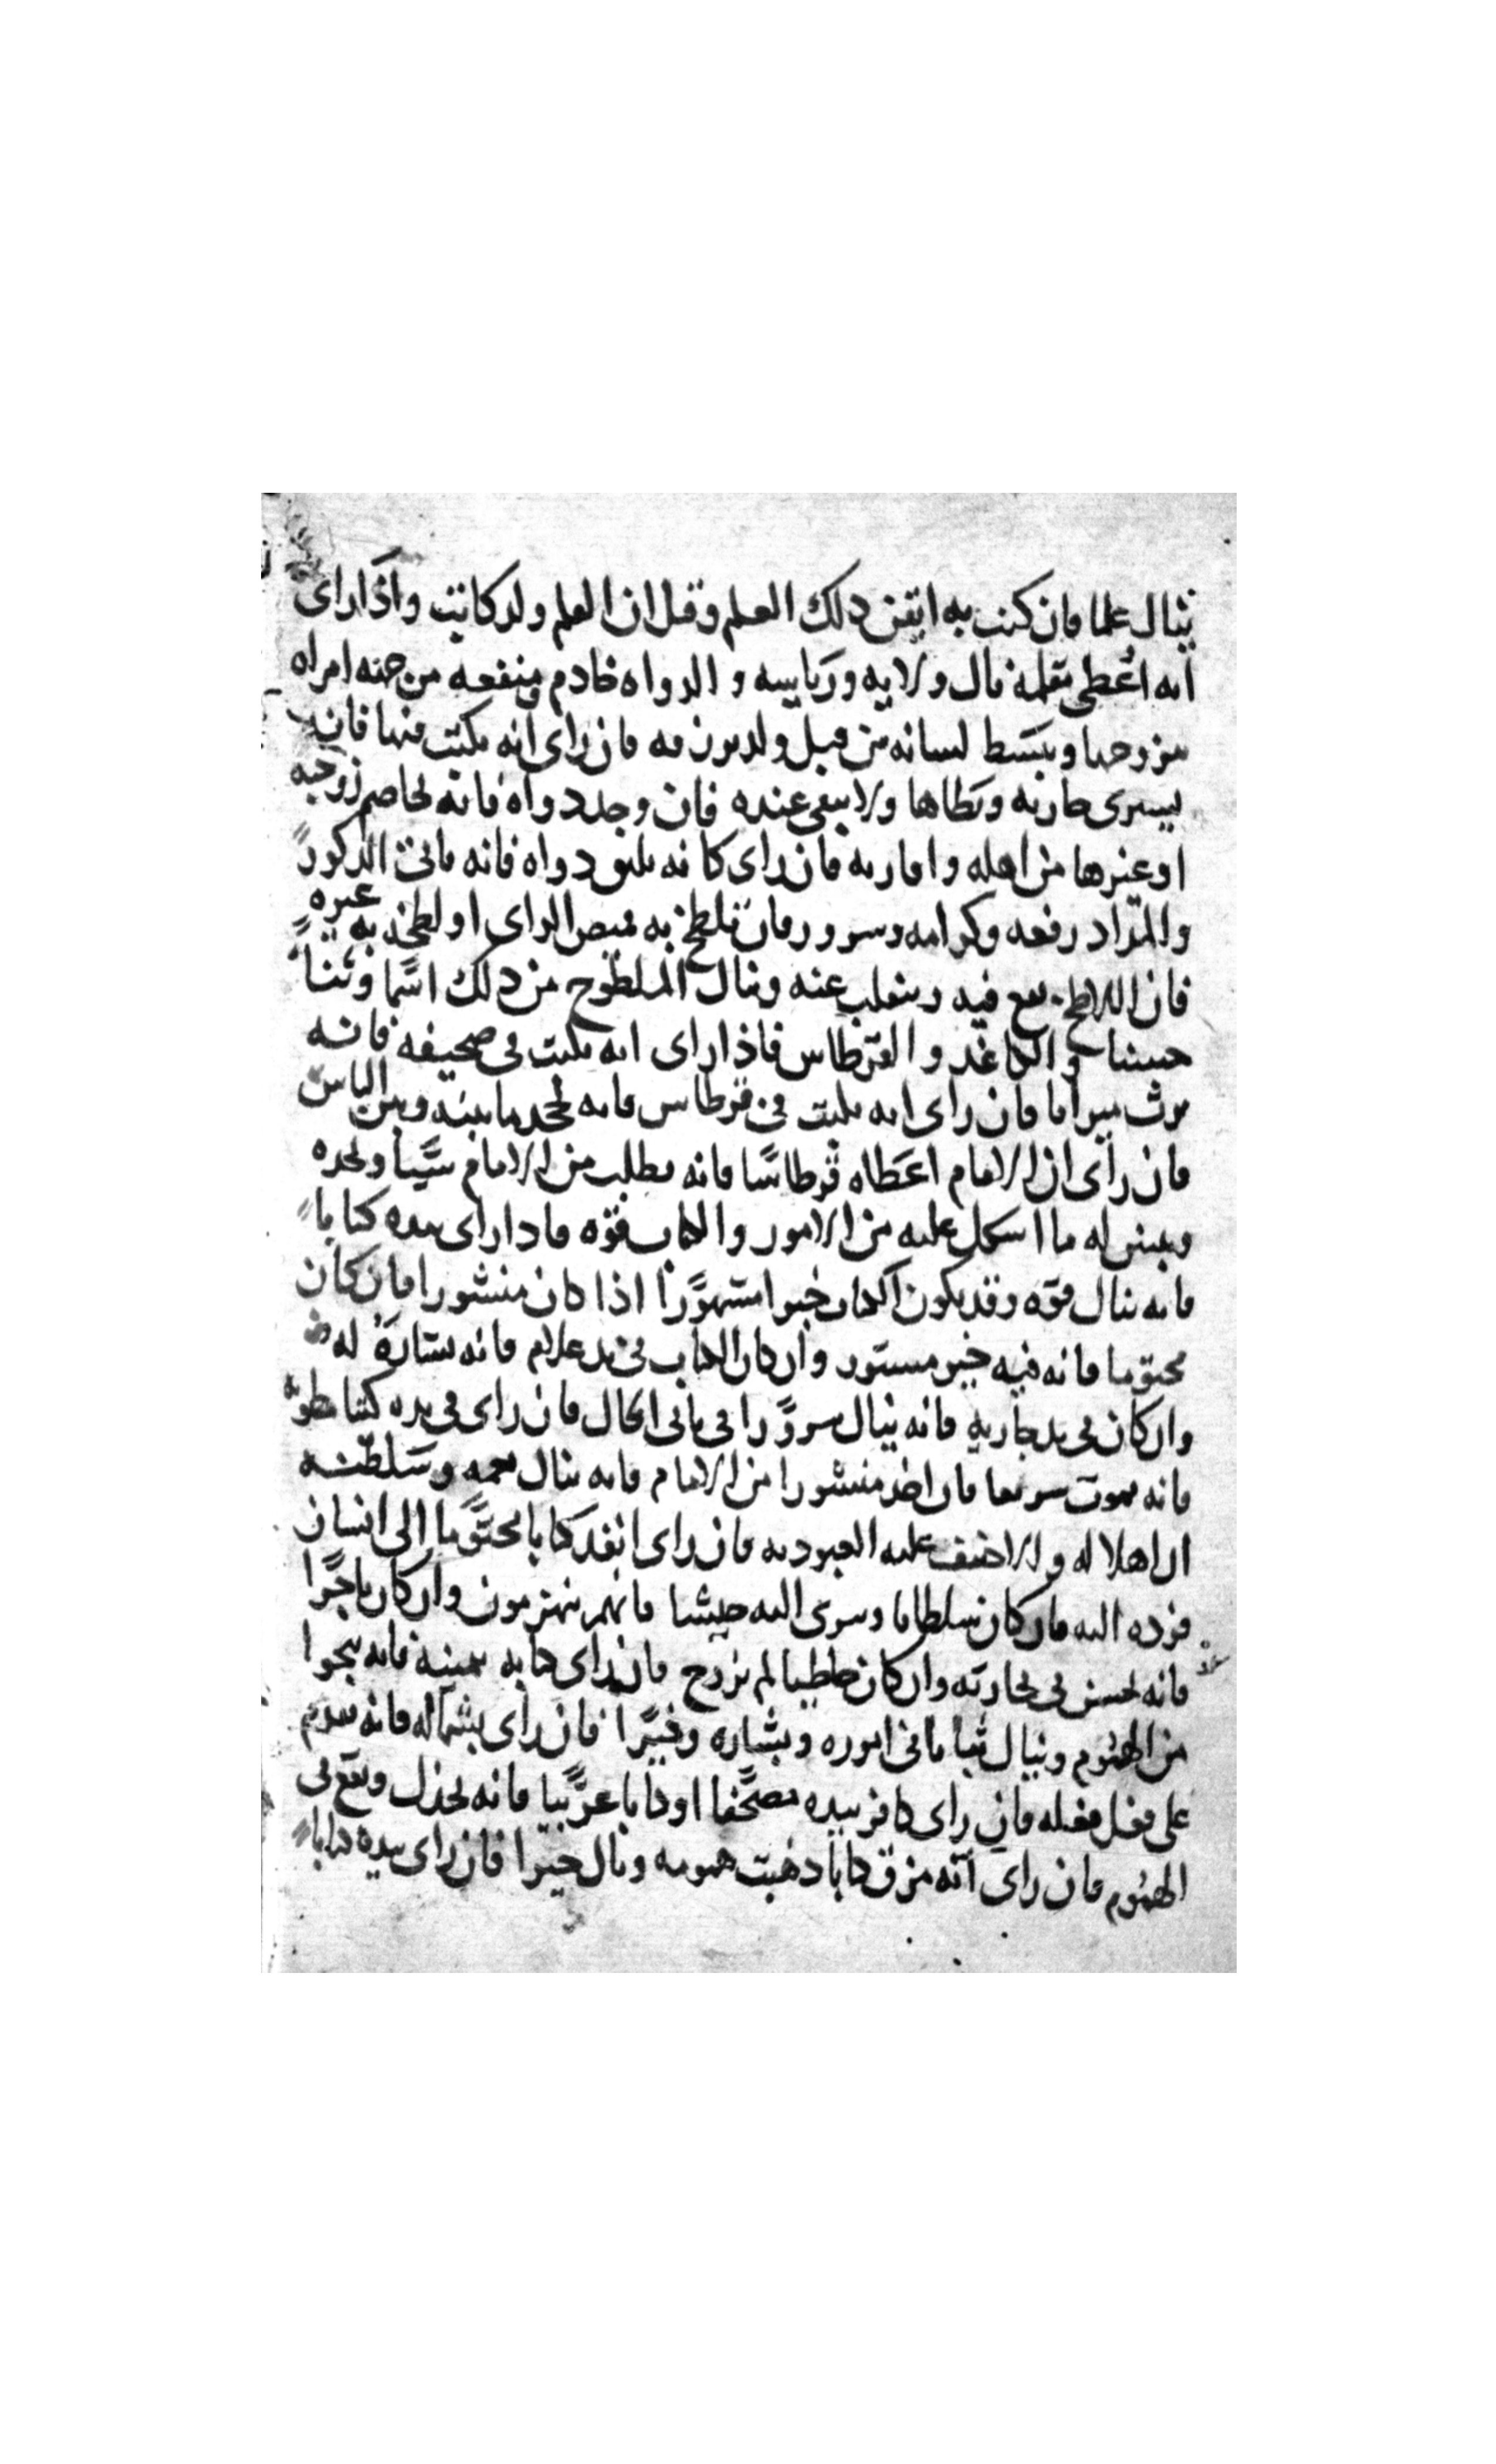 ينال علما فان كتب به اتقن ذلك العلم وقيل ان القلم ولد كاتب واذا راى
انه اعطى قلما نال ولايه ورياسه والدواه خادم ومنفعه من جهه امراه
يتزوجها ويبسط لسانه من قبل ولد يرزقه فان راى انه يكتب منها فانه
يشترى جاريه ويطاها ولا تبقى عنده فان وجد دواه فانه يخاصم زوجته
او غيرها من اهله واقاربه فان راى كانه يليق دواه فانه ياتى الذكور
والمداد رفعه وكرامه وسرور فان تلطخ به قميص الراى او لطخه به غيره
فان اللاطخ يقع فيه وينقلب عنه وينال الملطوخ من ذلك اسما وثنا
حسنا والكاغد والقرطاس فاذا راى انه يكتب فى صحيفه فانه
يرث ميراثا فان راى انه يكتب فى قرطاس فانه يجحد ما بينه وبين الناس
فان راى ان الامام اعطاه قرطاسا فانه يطلب من الامام شيا ويجده
ويبين له ما اشكل عليه من الامور والكتاب قوه فاذا راى بيده كتابا
فانه ينال قوه وقد يكون الكتاب خبرا مشهورا اذا كان منشورا فان كان
مختوما فانه فيه خبر مستور وان كان الكتاب فى يد غلام فانه بشاره له
وان كان فى يد جاريه فانه ينال سرورا فى ثانى الحال فان راى فى يده كتابا مطويه
فانه يموت سريعا فان اخذ منشورا من الامام فانه ينال نعمه وسلطنه
ان اهلا له والا خيف عليه العبوديه فان راى انفد كتابا مختوما الى انسان
فرده اليه فان كان سلطانا وسرى اليه جيشا فانهم ينهزمون وان كان تاجرا
فانه يخسر فى تجارته وان كان خاطبا لم يزوج فان راى كتابه بيمينه فانه ينجوا
من الهموم وينال ثباتا فى اموره وبشاره وخيرا فان راى بشماله فانه يندم
على فعل فعله فان راى كافر بيده مصحفا او كتابا عربيا فانه يخذل ويقع فى
الهموم فان راى انه مزق كتابا ذهبت همومه ونال خيرا فان راى بيده كتابا